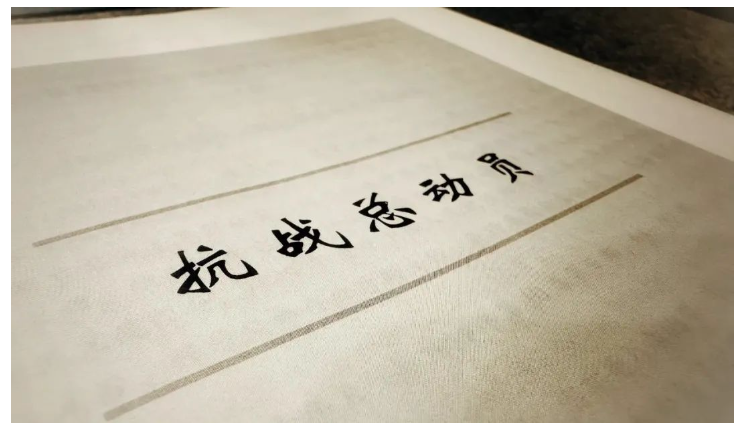 抗战总动员